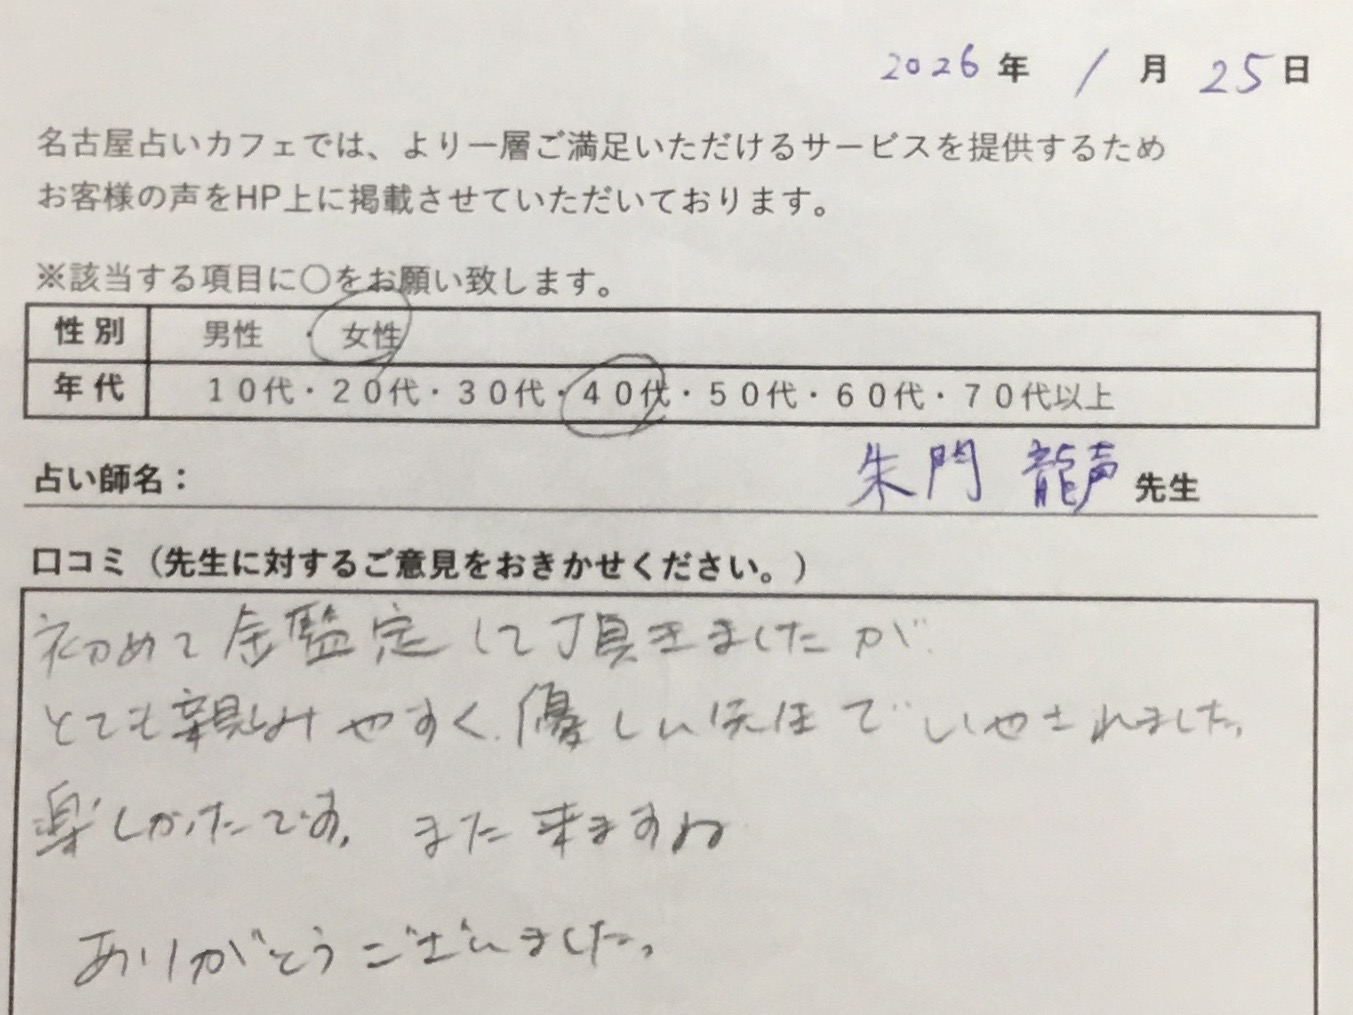 2026年 1月 25日
名古屋占いカフェでは、より一層ご満足いただけるサービスを提供するため
お客様の声をHP上に掲載させていただいております。
※該当する項目に〇をお願い致します。
性別 男性 ・ 女性
年代 10代・20代・30代・40代・50代・60代・70代以上
占い師名： 朱門 龍声 先生
口コミ（先生に対するご意見をおきかせください。）
初めて 鑑定して頂きましたが
とても親しみやすく、優しい先生でいやされました。
楽しかったです。また来ますね
ありがとうございました。